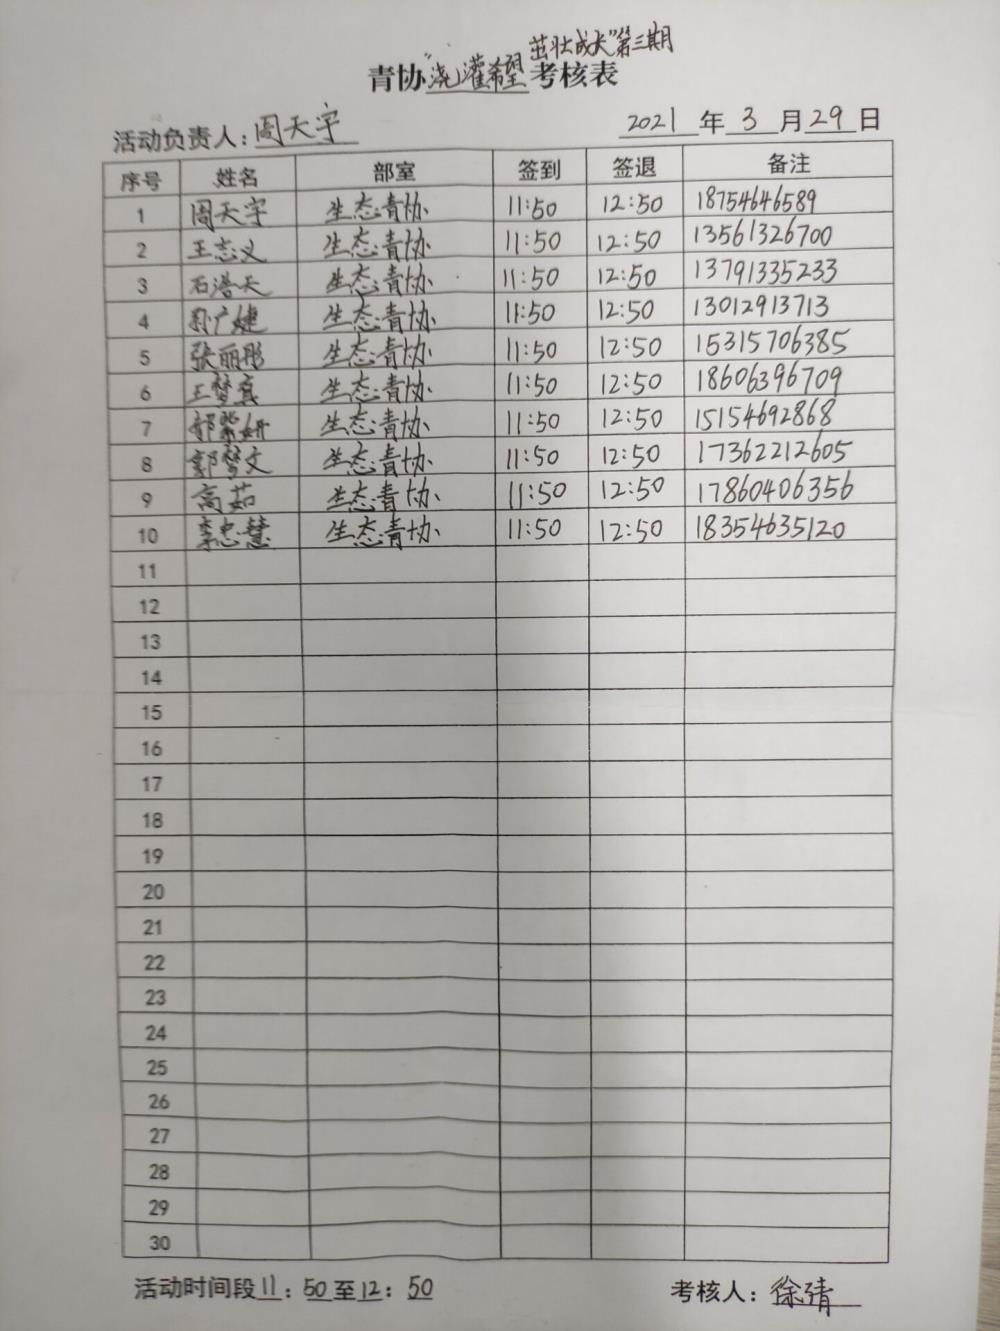 茁壮成长"第三期
青协"浇灌希望考核表
活动负责人：周天宇 2021年3月29日
序号 姓名 部室 签到 签退 备注
1 周天宇 生态青协 11:50 12:50 18754646589
2 王志义 生态青协 11:50 12:50 13561326700
3 石浩天 生态青协 11:50 12:50 13791335233
4 孙广婕 生态青协 11:50 12:50 13012913713
5 张丽彤 生态青协 11:50 12:50 15315706385
6 王梦真 生态青协 11:50 12:50 18606396709
7 郭紫妍 生态青协 11:50 12:50 15154692868
8 郭梦文 生态青协 11:50 12:50 17362212605
9 高茹 生态青协 11:50 12:50 17860406356
10 李忠慧 生态青协 11:50 12:50 18354635120
11
12
13
14
15
16
17
18
19
20
21
22
23
24
25
26
27
28
29
30
活动时间段11：50至12：50 考核人：徐倩